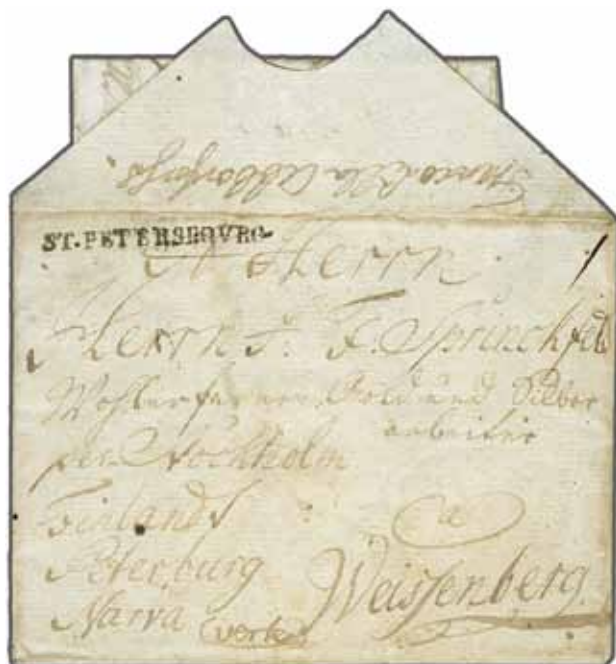 ST. PETERSBOVRG
Herrn
Herrn J: F. Sprinckfeld
Wohlerfarner Gold und Silber
arbeiter
per Stockholm
Finland
Peterburg a
Narva (verte) Weissenberg